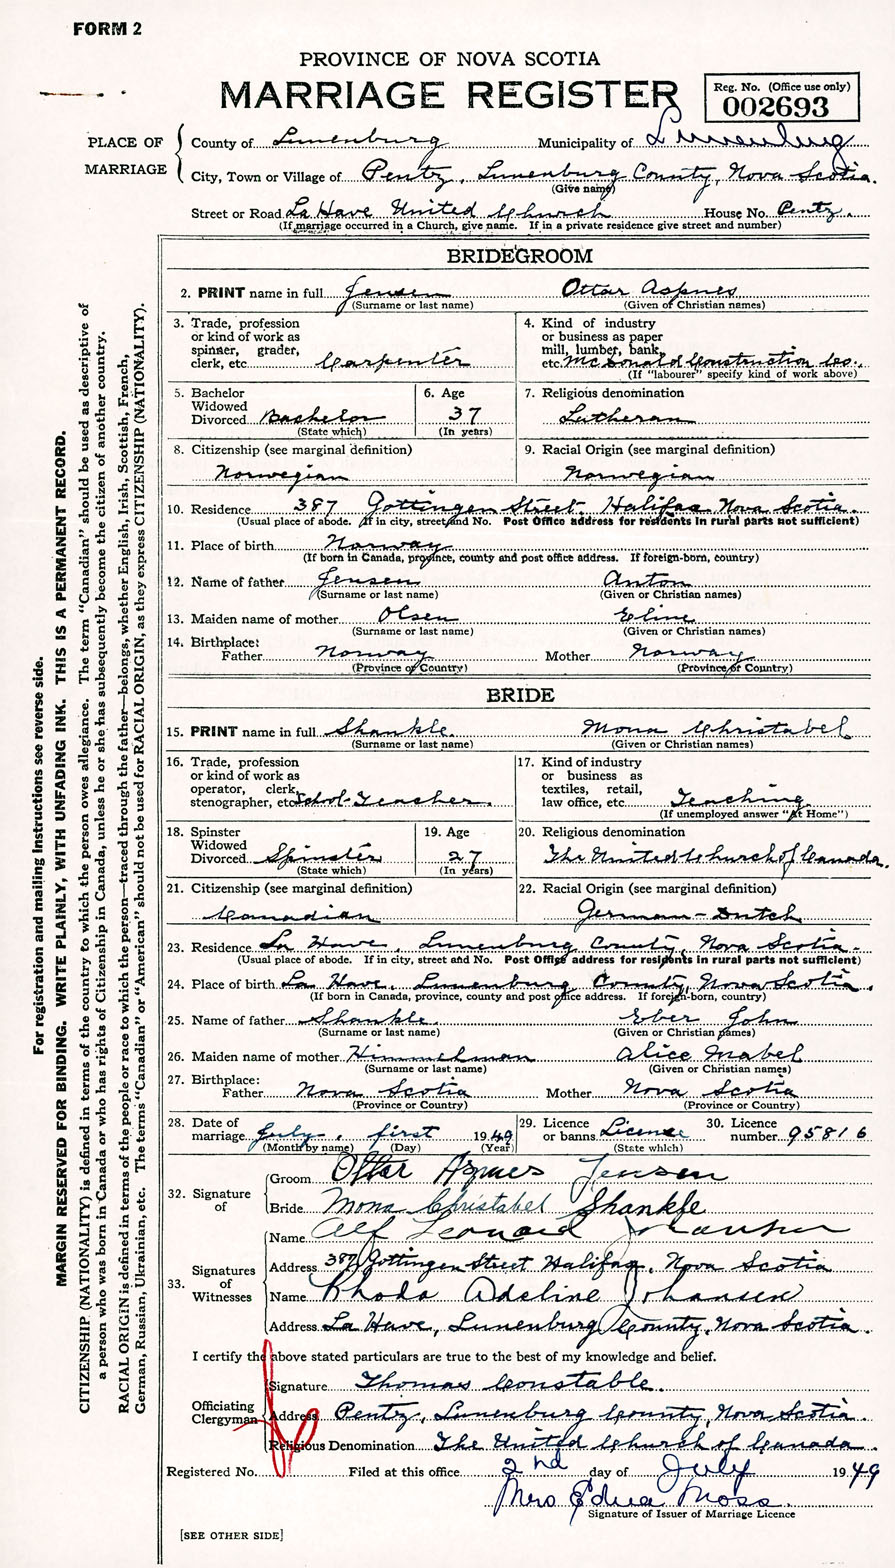 FORM 2
PROVINCE OF NOVA SCOTIA
MARRIAGE REGISTER
Reg. No. (Office use only)
002693
PLACE OF MARRIAGE
County of Lunenburg Municipality of Lunenburg
City, Town or Village of Pentz, Lunenburg County, Nova Scotia.
(Give name)
Street or Road La Have United Church House No. Pentz.
(If marriage occurred in a Church, give name. If in a private residence give street and number)
BRIDEGROOM
2. PRINT name in full Jensen Ottar Aspnes
(Surname or last name) (Given of Christian names)
3. Trade, profession or kind of work as spinner, grader, clerk, etc Carpenter
4. Kind of industry or business as paper mill, lumber, bank, etc. McDonald Construction Co.
(If "labourer" specify kind of work above)
5. Bachelor Widowed Divorced Bachelor
(State which)
6. Age 37
(In years)
7. Religious denomination
Lutheran
8. Citizenship (see marginal definition)
Norwegian
9. Racial Origin (see marginal definition)
Norwegian
10. Residence 387 Gottingen Street. Halifax Nova Scotia.
(Usual place of abode. If in city, street and No. Post Office address for residents in rural parts not sufficient)
11. Place of birth Norway
(If born in Canada, province, county and post office address. If foreign-born, country)
12. Name of father Jensen Anton
(Surname or last name) (Given or Christian names)
13. Maiden name of mother Olsen Eline
(Surname or last name) (Given or Christian names)
14. Birthplace:
Father Norway Mother Norway
(Province of Country) (Province or Country)
BRIDE
15. PRINT name in full Shankle. Mona Christabel
(Surname or last name) (Given or Christian names)
16. Trade, profession or kind of work as operator, clerk, stenographer, etc School-Teacher.
17. Kind of industry or business as textiles, retail, law office, etc Teaching.
(If unemployed answer "At Home")
18. Spinster Widowed Divorced Spinster
(State which)
19. Age 27
(In years)
20. Religious denomination
The United Church of Canada.
21. Citizenship (see marginal definition)
Canadian
22. Racial Origin (see marginal definition)
German-Dutch
23. Residence La Have, Lunenburg County, Nova Scotia.
(Usual place of abode. If in city, street and No. Post Office address for residents in rural parts not sufficient)
24. Place of birth La Have, Lunenburg County, Nova Scotia.
(If born in Canada, province, county and post office address. If foreign-born, country)
25. Name of father Shankle. Eber John
(Surname or last name) (Given or Christian names)
26. Maiden name of mother Himmelman Alice Mabel
(Surname or last name) (Given or Christian names)
27. Birthplace:
Father Nova Scotia Mother Nova Scotia
(Province or Country) (Province or Country)
28. Date of marriage July. first 1949
(Month by name) (Day) (Year)
29. Licence or banns Licence
(State which)
30. Licence number 95816
32. Signature of
Groom Ottar Aspnes Jensen
Bride Mona Christabel Shankle
33. Signatures of Witnesses
Name Alf Leonard Johansen
Address 387 Gottingen Street Halifax, Nova Scotia
Name Rhoda Adeline Johansen
Address La Have, Lunenburg County, Nova Scotia.
I certify the above stated particulars are true to the best of my knowledge and belief.
Officiating Clergyman
Signature Thomas Constable.
Address Pentz, Lunenburg County, Nova Scotia.
Religious Denomination The United Church of Canada.
Registered No. Filed at this office 2nd day of July 1949
Mrs Edna Moss.
Signature of Issuer of Marriage Licence
[SEE OTHER SIDE]
For registration and mailing instructions see reverse side.
MARGIN RESERVED FOR BINDING. WRITE PLAINLY, WITH UNFADING INK. THIS IS A PERMANENT RECORD.
CITIZENSHIP (NATIONALITY) is defined in terms of the country to which the person owes allegiance. The term "Canadian" should be used as descriptive of
a person who was born in Canada or who has rights of Citizenship in Canada, unless he or she has subsequently become the citizen of another country.
RACIAL ORIGIN is defined in terms of the people or race to which the person—traced through the father—belongs, whether English, Irish, Scottish, French,
German, Russian, Ukrainian, etc. The terms "Canadian" or "American" should not be used for RACIAL ORIGIN, as they express CITIZENSHIP (NATIONALITY).